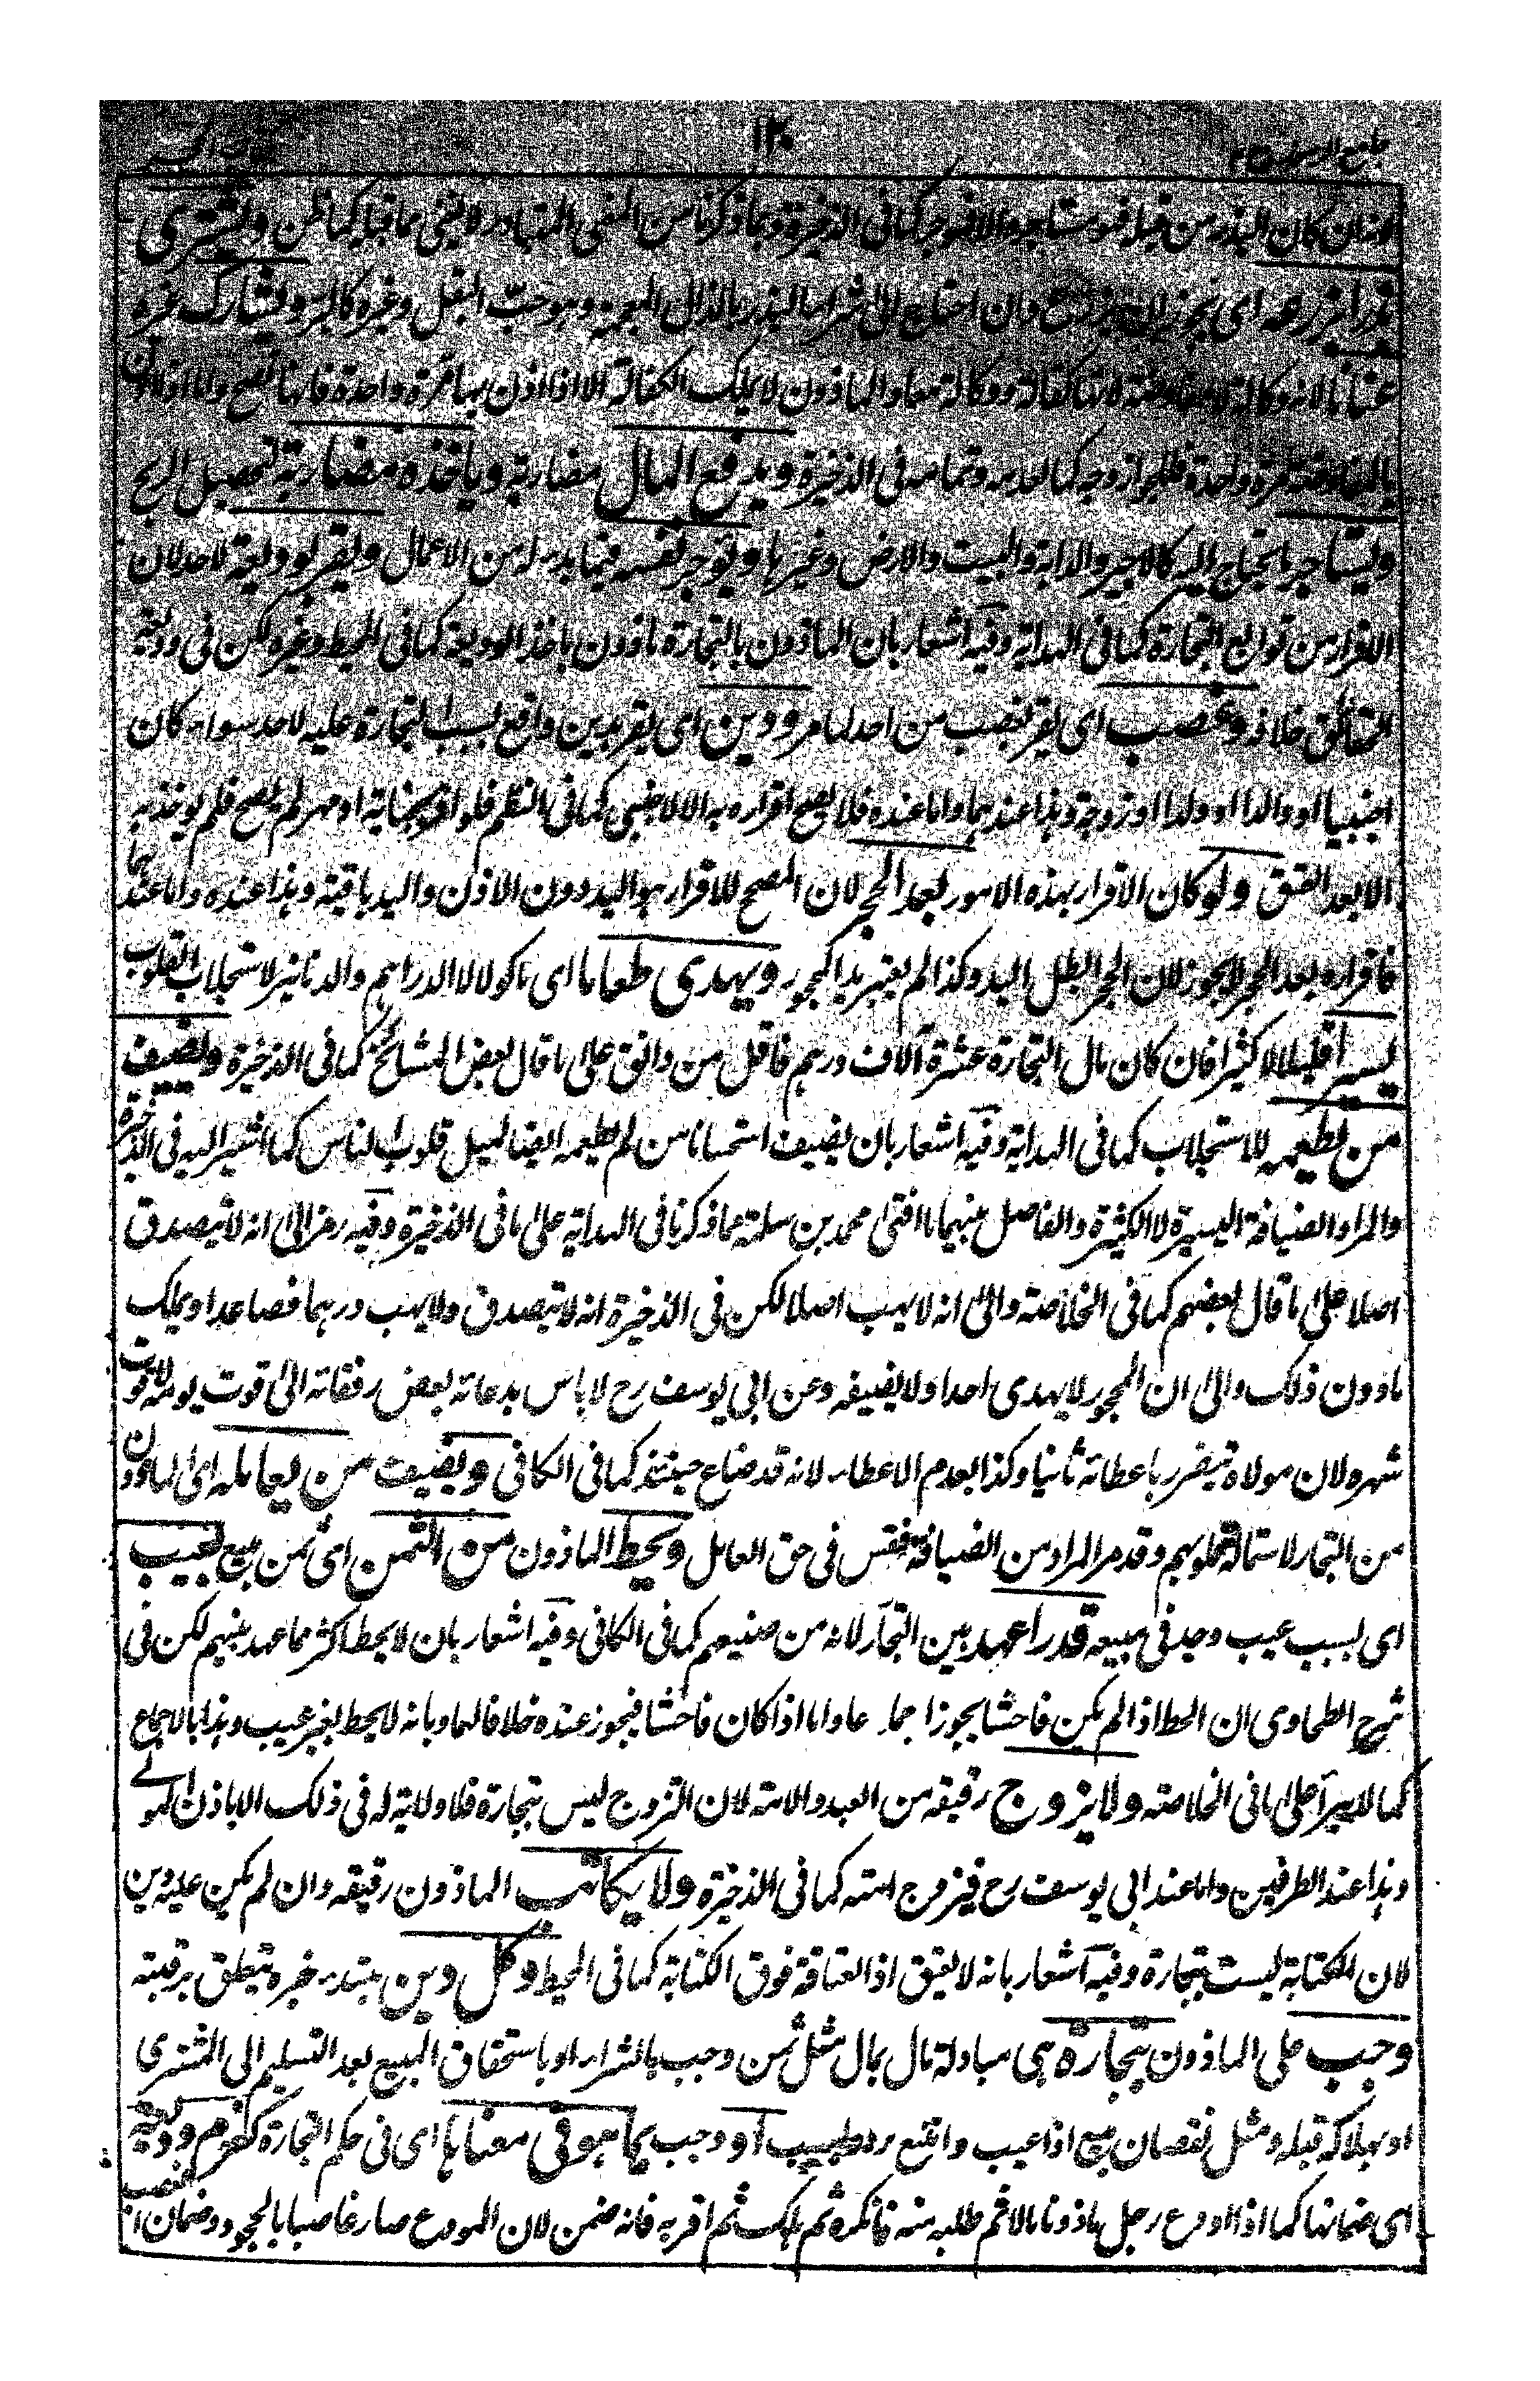 ١٢٠
لانه ان كان البذر من قبله فهو مستاجر والا فهو جر كما فى الذخيرة وبما ذكرنا من المعنى المتبادر لا يخفى ما فيه كما ظن ويشترى
بذرا يزرعه اى يجوز ان يزرع وان احتاج الى شراء البذر بالذال المعجمة وهو حب البقل وغيره كالبر ويشارك غيره
عنانا لانه وكالة لا مفاوضة لانها كفالة ووكالة معا والماذون لا يملك الكفالة الا اذا اذن بها مرة واحدة فانها تصح واما اذا اذن
بالمفاوضة مرة واحدة وتمامه فى الذخيرة ويدفع المال مضاربة وياخذه مضاربة لتحصيل الربح
ويستاجر ما يحتاج اليه كالاجير والدابة والبيت والارض وغيرها ويوجر نفسه فيما بدا له من الاعمال ويقر بوديعة لاحد لان
الاقرار من توابع التجارة كما فى الهداية وفيه اشعار بان الماذون بالتجارة ماذون باخذ الوديعة كما فى المحيط وغيره لكن فى وديعة
الحقائق خلافه وغصب اى يقر بغصب من احد لما مر ودين اى يقر بدين واقع بسبب التجارة عليه لاحد سواء كان
اجنبيا او والدا او ولدا او زوجة وهذا عندهما واما عنده فلا يصح اقراره به الا لاجنبى كما فى النظم فلو اقر بجناية او مهر لم يصح فلم يوخذ به
الا بعد العتق ولو كان الاقرار بهذه الامور بعد الحجر لان المصحح للاقرار هو اليد دون الاذن واليد باقية وهذا عنده واما عندهما
فاقراره بعد الحجر لا يجوز لان الحجر ابطل اليد وكذا لم يعتبر يد المحجور ويهدى طعاما اى ماكولا لا الدراهم والدنانير لاستجلاب القلوب
يسيرا قليلا لا كثيرا فان كان مال التجارة عشرة آلاف درهم فاقل من دانق على ما قال بعض المشائخ كما فى الذخيرة ويضيف
من يطعمه للاستجلاب كما فى الهداية وفيه اشعار بان يضيف استحسانا من لم يطعمه ايضا لميل قلوب الناس كما اشير اليه فى الذخيرة
والمراد الضيافة اليسيرة لا الكثيرة والفاصل بينهما ما افتى محمد بن سلمة مما ذكرنا فى الهداية على ما فى الذخيرة وفيه رمز الى انه لا يتصدق
اصلا على ما قال بعضهم كما فى الخلاصة والى انه لا يهب اصلا لكن فى الذخيرة انه لا يتصدق ولا يهب درهما فصاعدا ويملك
ما دون ذلك والى ان المحجور لا يهدى احدا ولا يضيفه وعن ابى يوسف رح لا باس بدعاته بعض رفقائه الى قوت يومه لا قوت
شهره لان مولاه يتضرر باعطائه ثانيا وكذا بعدم الاعطاء لانه قد ضاع حينئذ كما فى الكافى ويضيف من يعامله اى الماذون
من التجار لاستمالة قلوبهم وقد مر المراد من الضيافة فقس فى حق العامل ويحط الماذون من الثمن اى ثمن مبيع بعيب
اى بسبب عيب وجد فى مبيعه قدرا عهد بين التجار لانه من صنيعهم كما فى الكافى وفيه اشعار بان لا يحط اكثر مما عهد بينهم لكن فى
شرح الطحاوى ان الحط اذا لم يكن فاحشا يجوز اجماعا واما اذا كان فاحشا فيجوز عنده خلافا لهما وبانه لا يحط بغير عيب وهذا بالاجماع
كما لا يبرأ على ما فى الخلاصة ولا يزوج رقيقه من العبد والامة لان التزوج ليس بتجارة فلا ولاية له فى ذلك الا باذن المولى
وهذا عند الطرفين واما عند ابى يوسف رح فيزوج امته كما فى الذخيرة ولا يكاتب الماذون رقيقه وان لم يكن عليه دين
لان الكتابة ليست بتجارة وفيه اشعار بانه لا يعتق اذ العتاقة فوق الكتابة كما فى المحيط وكل دين مبتدء خبره يتعلق برقبته
وجب على الماذون بتجارة هى مبادلة مال بمال مثل ثمن وجب بالشراء او باستحقاق المبيع بعد التسليم الى المشترى
او بهلاكه قبله ومثل نقصان مبيع اذا عيب وامتنع رده بعيب او وجب بما هو فى معناها اى فى حكم التجارة كغرم وديعة
اى ضمانها كما اذا اودع رجل ماذونا مالا ثم طلبه منه فانكره ثم هلك ثم اقر به فانه ضمن لان المودع صار غاصبا بالجحود وضمان الغصب